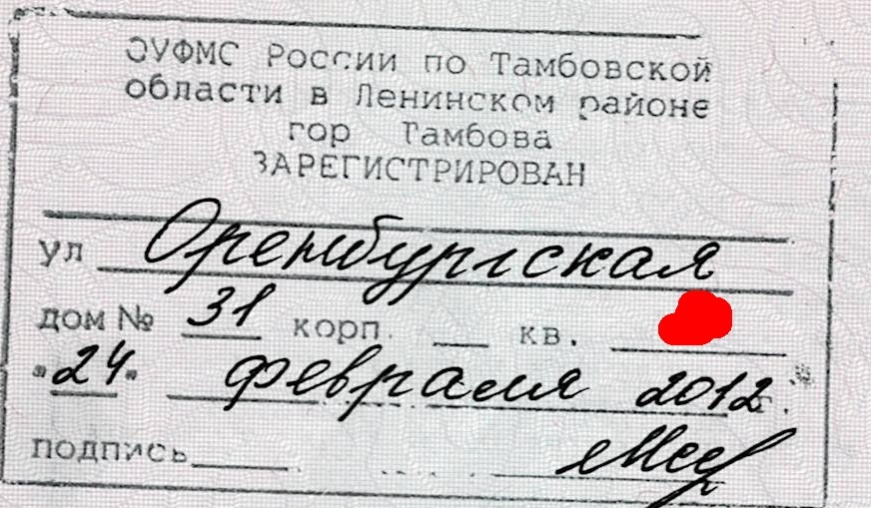 ОУФМС России по Тамбовской
области в Ленинском районе
гор Тамбова
ЗАРЕГИСТРИРОВАН
ул Оренбургская
дом № 31 корп. __ кв. ____
"24" февраля 2012 г.
подпись